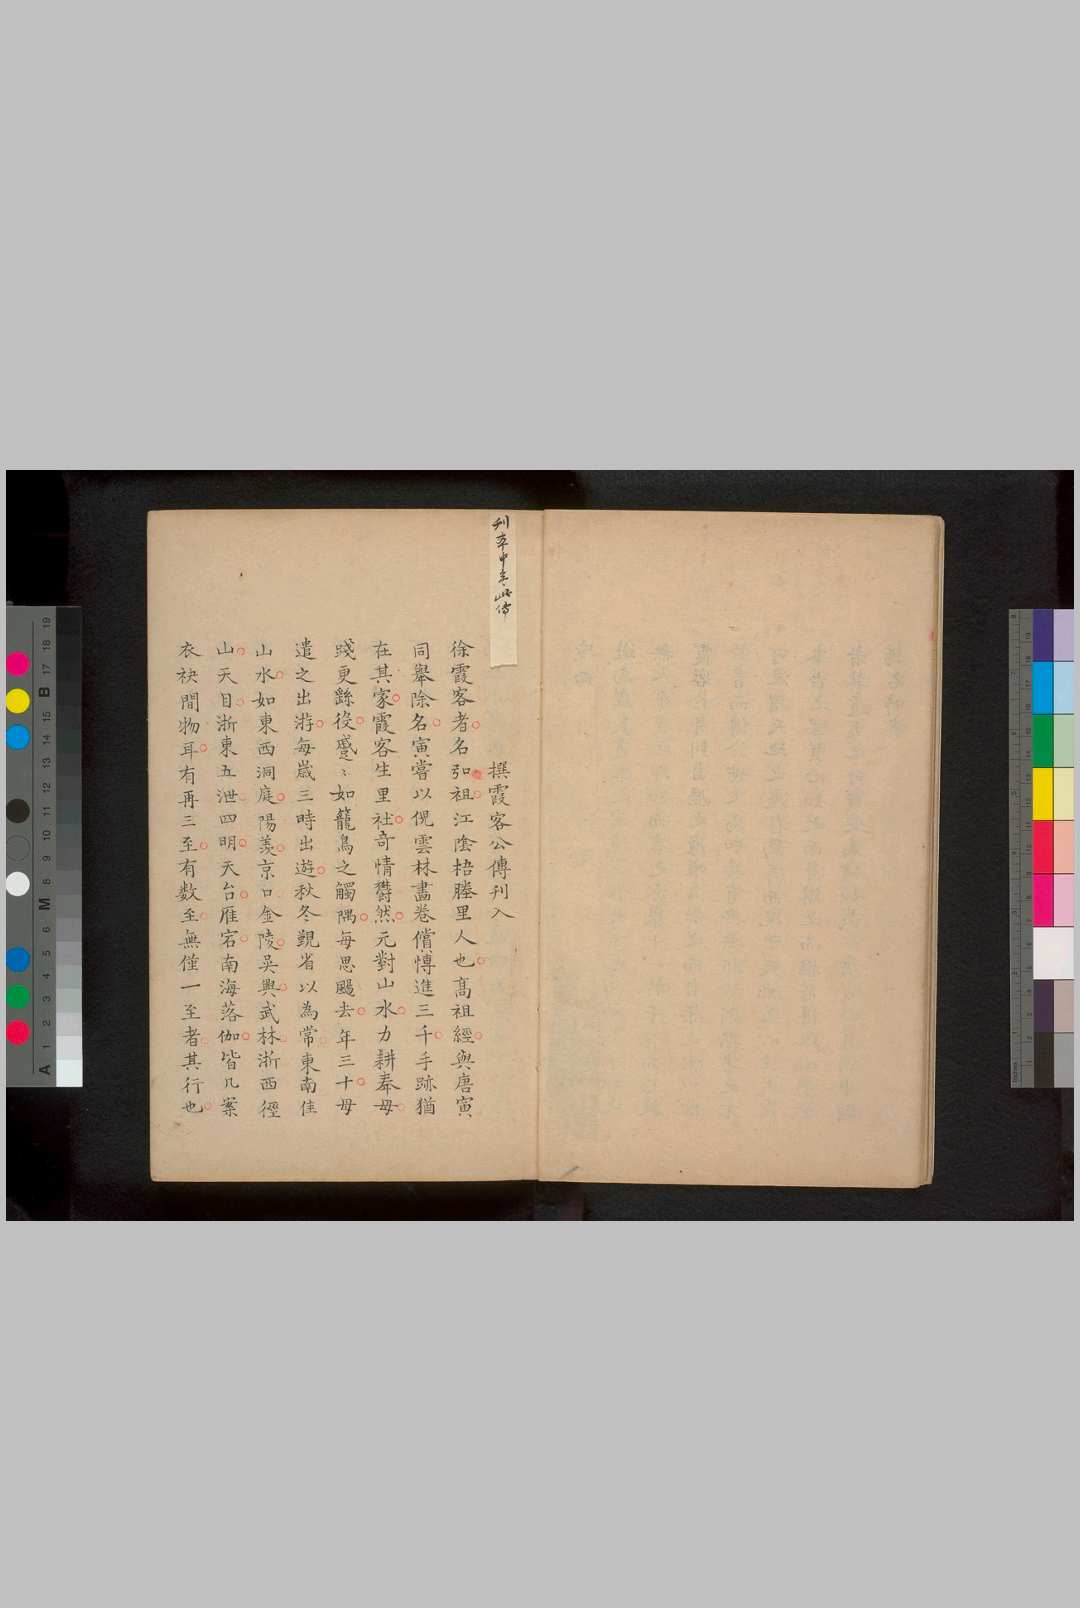 刊本中無此傳
撰霞客公傳刊入
徐霞客者名弘祖江陰梧塍里人也高祖經與唐寅
同舉除名寅嘗以倪雲林畫卷償博進三千手跡猶
在其家霞客生里社奇情鬱然元對山水力耕奉母
踐更繇役蹙〻如籠鳥之觸隅每思颺去年三十母
遣之出游每歲三時出遊秋冬覲省以為常東南佳
山水如東西洞庭陽羨京口金陵吳興武林浙西徑
山天目浙東五泄四明天台雁宕南海落伽皆几案
衣袂間物耳有再三至有数至無僅一至者其行也